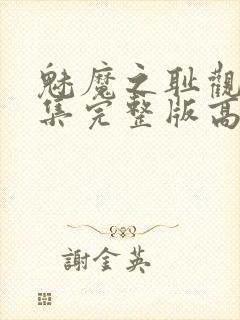 魅魔之耻觀
集完整版高
謝金英